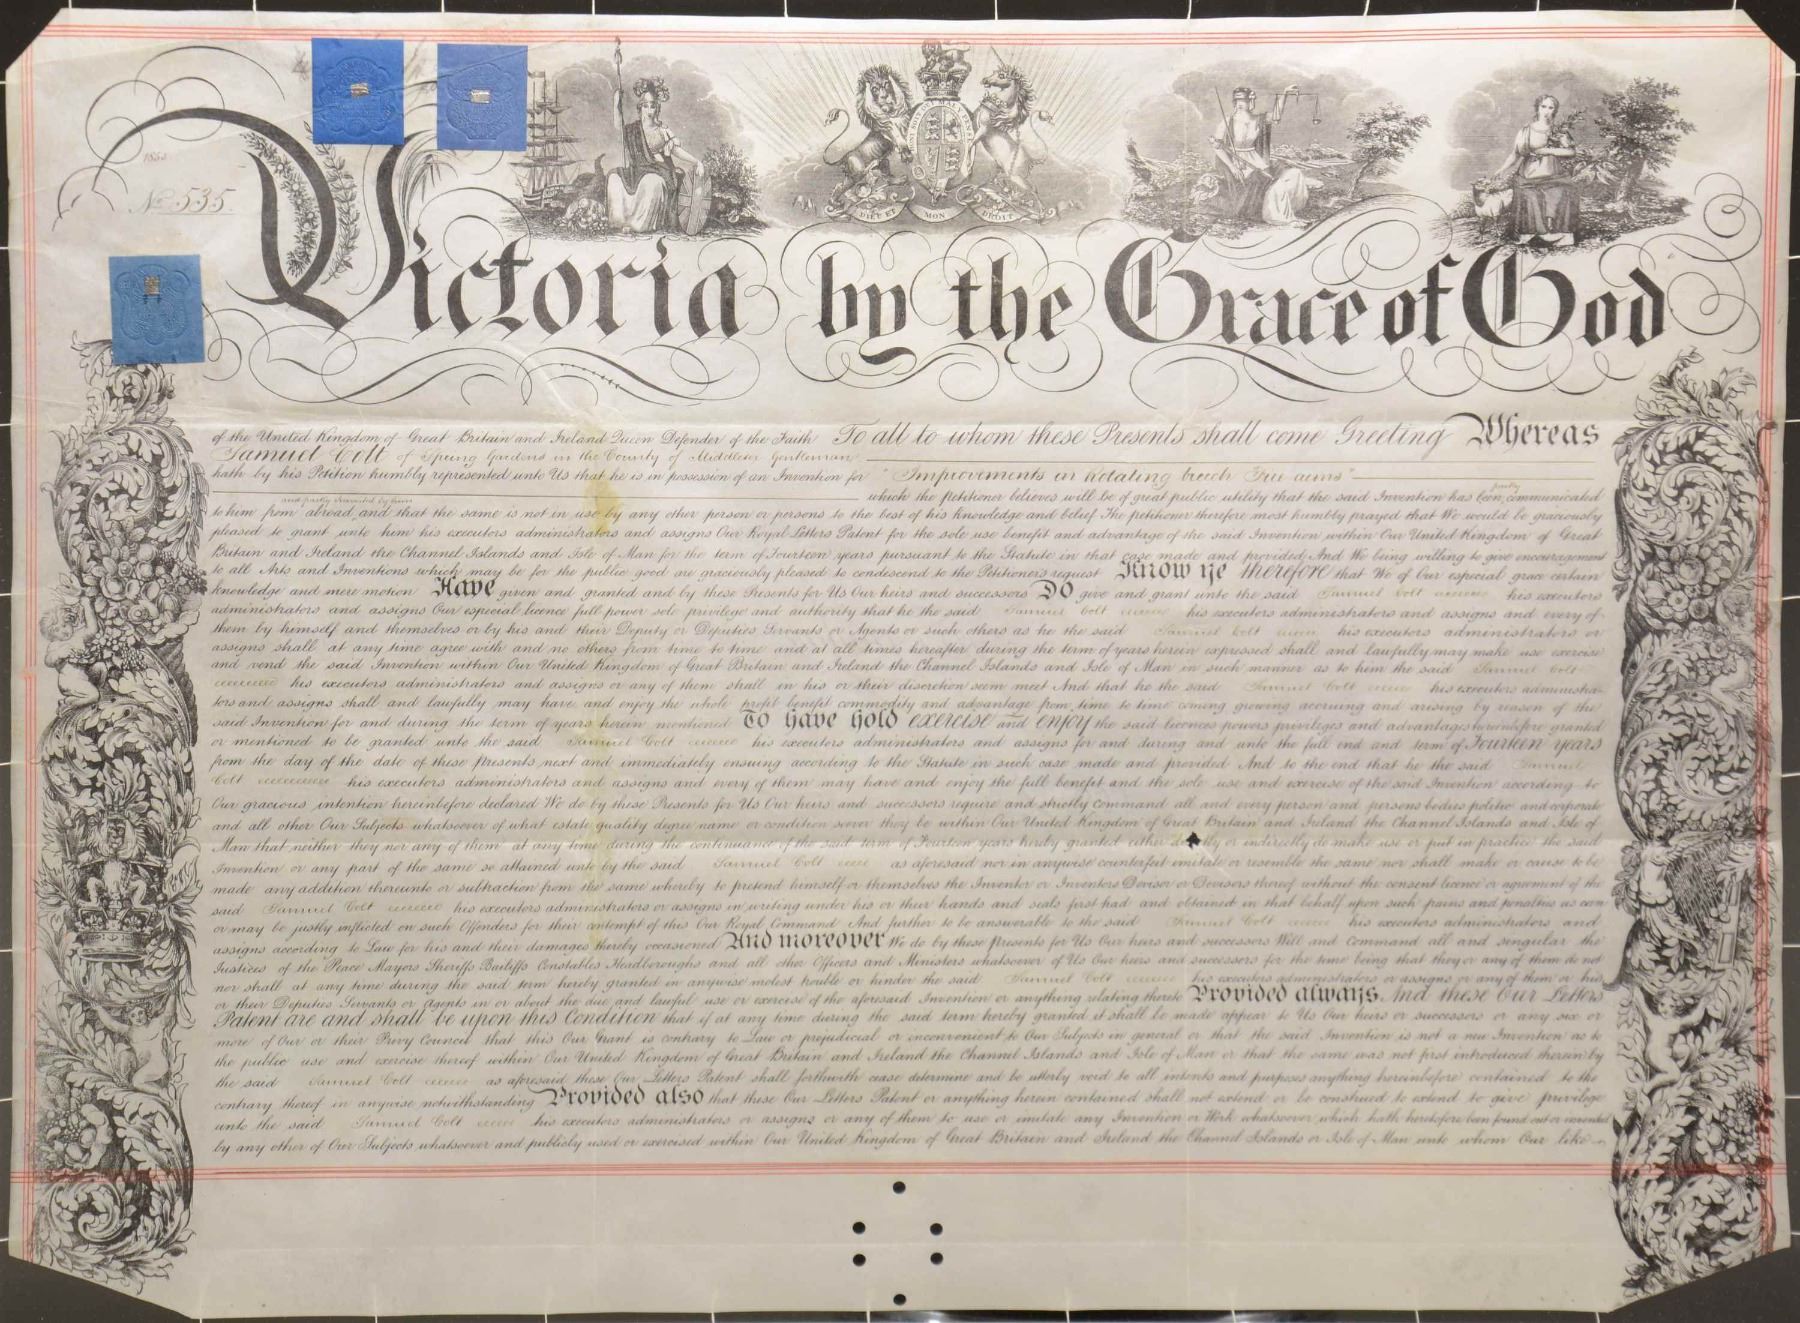 1853
No. 535.
DIEU ET MON DROIT
Victoria by the Grace of God
of the United Kingdom of Great Britain and Ireland Queen Defender of the Faith To all to whom these Presents shall come Greeting Whereas
Samuel Colt of Spring Gardens in the County of Middlesex Gentleman
hath by his Petition humbly represented unto Us that he is in possession of an Invention for "Improvements in Rotating breech Fire arms"
and partly invented by him which the petitioner believes will be of great public utility that the said Invention has been partly communicated
to him from abroad and that the same is not in use by any other person or persons to the best of his knowledge and belief The petitioner therefore most humbly prayed that We would be graciously
pleased to grant unto him his executors administrators and assigns Our Royal Letters Patent for the sole use benefit and advantage of the said Invention within Our United Kingdom of Great
Britain and Ireland the Channel Islands and Isle of Man for the term of Fourteen years pursuant to the Statute in that case made and provided And We being willing to give encouragement
to all Arts and Inventions which may be for the public good are graciously pleased to condescend to the Petitioners request Know ye therefore that We of Our especial grace certain
knowledge and mere motion Have given and granted and by these Presents for Us Our heirs and successors Do give and grant unto the said Samuel Colt his executors
administrators and assigns Our especial licence full power sole privilege and authority that he the said Samuel Colt his executors administrators and assigns and every of
them by himself and themselves or by his and their Deputy or Deputies Servants or Agents or such others as he the said Samuel Colt his executors administrators or
assigns shall at any time agree with and no others from time to time and at all times hereafter during the term of years herein expressed shall and lawfully may make use exercise
and vend the said Invention within Our United Kingdom of Great Britain and Ireland the Channel Islands and Isle of Man in such manner as to him the said Samuel Colt
his executors administrators and assigns or any of them shall in his or their discretion seem meet And that he the said Samuel Colt his executors administra-
tors and assigns shall and lawfully may have and enjoy the whole profit benefit commodity and advantage from time to time coming growing accruing and arising by reason of the
said Invention for and during the term of years herein mentioned To have hold exercise and enjoy the said licences powers privileges and advantages hereinbefore granted
or mentioned to be granted unto the said Samuel Colt his executors administrators and assigns for and during and unto the full end and term of Fourteen years
from the day of the date of these presents next and immediately ensuing according to the Statute in such case made and provided And to the end that he the said Samuel
Colt his executors administrators and assigns and every of them may have and enjoy the full benefit and the sole use and exercise of the said Invention according to
Our gracious intention hereinbefore declared We do by these Presents for Us Our heirs and successors require and strictly command all and every person and persons bodies politic and corporate
and all other Our Subjects whatsoever of what estate quality degree name or condition soever they be within Our United Kingdom of Great Britain and Ireland the Channel Islands and Isle of
Man that neither they nor any of them at any time during the continuance of the said term of Fourteen years hereby granted either directly or indirectly do make use or put in practice the said
Invention or any part of the same so attained unto by the said Samuel Colt as aforesaid nor in anywise counterfeit imitate or resemble the same nor shall make or cause to be
made any addition thereunto or subtraction from the same whereby to pretend himself or themselves the Inventor or Inventors Devisor or Devisors thereof without the consent licence or agreement of the
said Samuel Colt his executors administrators or assigns in writing under his or their hands and seals first had and obtained in that behalf upon such pains and penalties as can
or may be justly inflicted on such Offenders for their contempt of this Our Royal Command And further to be answerable to the said Samuel Colt his executors administrators and
assigns according to Law for his and their damages thereby occasioned And moreover We do by these presents for Us Our heirs and successors Will and Command all and singular the
Justices of the Peace Mayors Sheriffs Bailiffs Constables Headboroughs and all other Officers and Ministers whatsoever of Us Our heirs and successors for the time being that they or any of them do not
nor shall at any time during the said term hereby granted in anywise molest trouble or hinder the said Samuel Colt his executors administrators or assigns or any of them or his
or their Deputies Servants or Agents in or about the due and lawful use or exercise of the aforesaid Invention or anything relating thereto Provided always And these Our Letters
Patent are and shall be upon this Condition that if at any time during the said term hereby granted it shall be made appear to Us Our heirs or successors or any six or
more of Our or their Privy Council that this Our Grant is contrary to Law or prejudicial or inconvenient to Our Subjects in general or that the said Invention is not a new Invention as to
the public use and exercise thereof within Our United Kingdom of Great Britain and Ireland the Channel Islands and Isle of Man or that the same was not first introduced therein by
the said Samuel Colt as aforesaid these Our Letters Patent shall forthwith cease determine and be utterly void to all intents and purposes anything hereinbefore contained to the
contrary thereof in anywise notwithstanding Provided also that these Our Letters Patent or anything herein contained shall not extend or be construed to extend to give privilege
unto the said Samuel Colt his executors administrators or assigns or any of them to use or imitate any Invention or Work whatsoever which hath heretofore been found out or invented
by any other of Our Subjects whatsoever and publicly used or exercised within Our United Kingdom of Great Britain and Ireland the Channel Islands or Isle of Man unto whom Our like